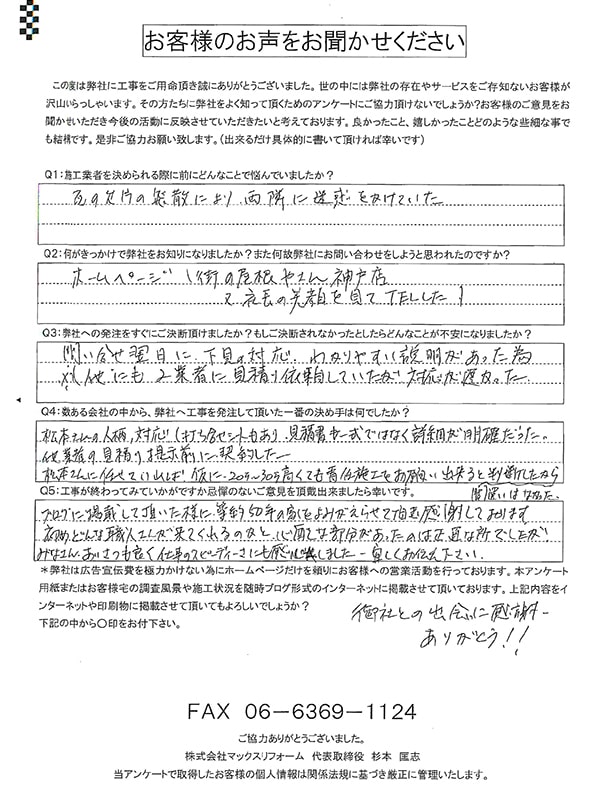 お客様のお声をお聞かせください
この度は弊社に工事をご用命頂き誠にありがとうございました。世の中には弊社の存在やサービスをご存知ないお客様が
沢山いらっしゃいます。その方たちに弊社をよく知って頂くためのアンケートにご協力頂けないでしょうか?お客様のご意見をお
聞かせいただき今後の活動に反映させていただきたいと考えております。良かったこと、嬉しかったことどのような些細な事で
も結構です。是非ご協力お願い致します。(出来るだけ具体的に書いて頂ければ幸いです)
Q1:施工業者を決められる際に前にどんなことで悩んでいましたか?
瓦の欠片の飛散により、両隣に迷惑をかけていた
Q2:何がきっかけで弊社をお知りになりましたか?また何故弊社にお問い合わせをしようと思われたのですか?
ホームページ(街の屋根やさん神戸店
又店長の笑顔を見てTELした)
Q3:弊社への発注をすぐにご決断頂けましたか?もしご決断されなかったとしたらどんなことが不安になりましたか?
問い合せ翌日に下見の対応、わかりやすい説明があった為
※他にも2業者に見積り依頼していたが対応が遅かった―
Q4:数ある会社の中から、弊社へ工事を発注して頂いた一番の決め手は何でしたか?
松本さんの人柄,対応(打ち合せシートもあり、見積書も一式ではなく詳細が明確だった。
他業者の見積り提示前に契約した―
松本さんに任せていれば仮に20万~30万高くても責任施工をお願い出来ると判断したから
間違いはなかった。
Q5:工事が終わってみていかがですか忌憚のないご意見を頂戴出来ましたら幸いです。
ブログに掲載して頂いた様に、築約40年の家をよみがえらせて頂き感謝しております
初めどんな職人さんが来てくれるのかと、心配な部分があったのは正直な所でしたが
みなさん、あいさつも良く仕事のスピーディーさにも感心しました―宜しくお伝え下さい。
*弊社は広告宣伝費を極力かけない為にホームページだけを頼りにお客様への営業活動を行っております。本アンケート
用紙またはお客様宅の調査風景や施工状況を随時ブログ形式のインターネットに掲載させて頂いております。上記内容をイ
ンターネットや印刷物に掲載させて頂いてもよろしいでしょうか?
下記の中から〇印をお付下さい。
御社との出会いに感謝―
ありがとう!!
FAX 06-6369-1124
ご協力ありがとうございました。
株式会社マックスリフォーム 代表取締役 杉本 匡志
当アンケートで取得したお客様の個人情報は関係法規に基づき厳正に管理いたします。